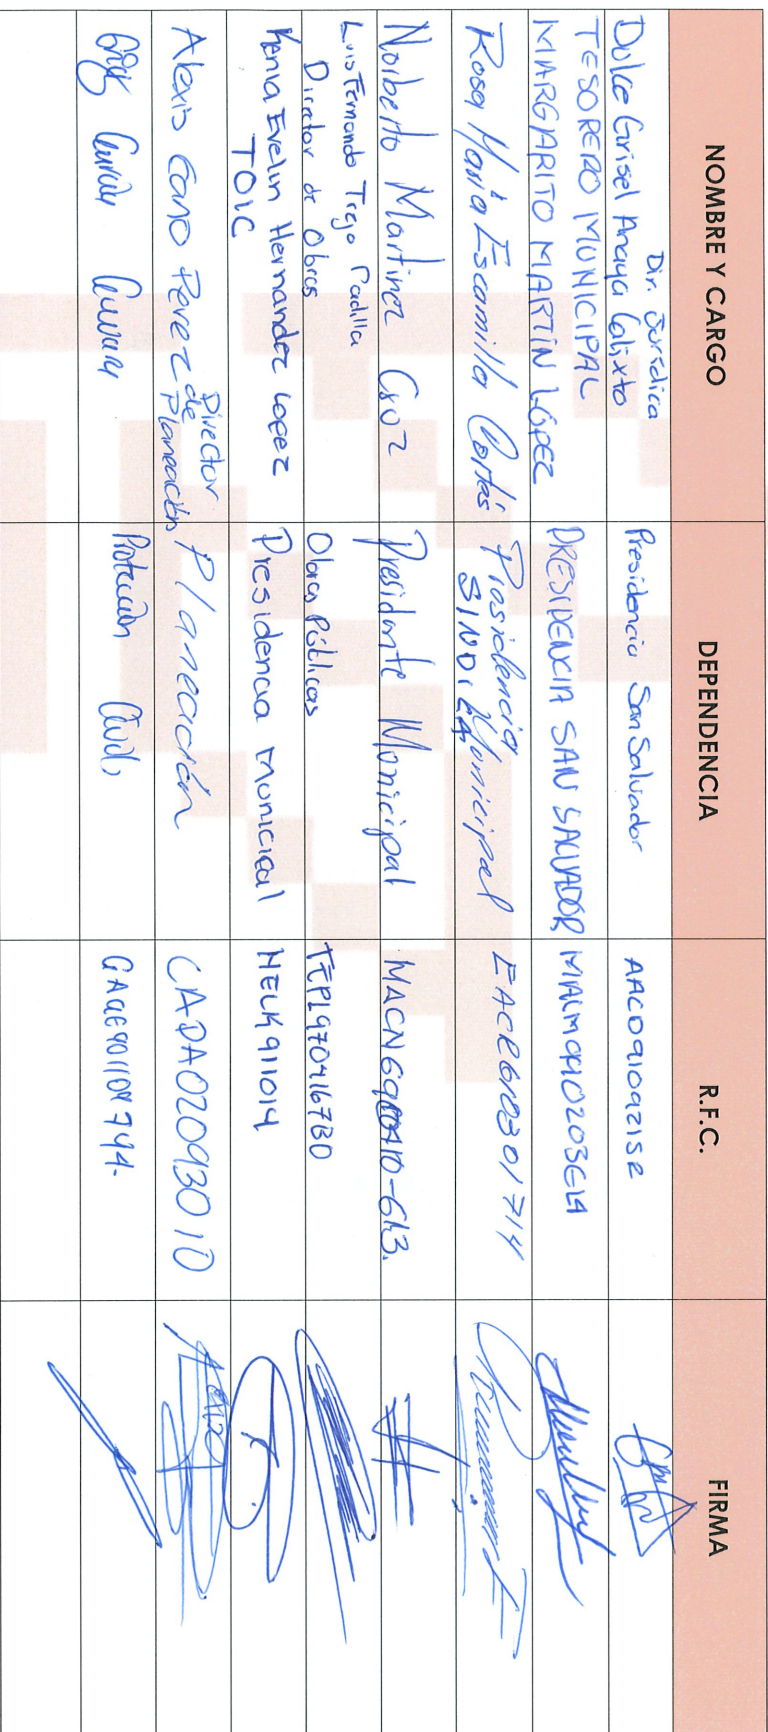 NOMBRE Y CARGO DEPENDENCIA R.F.C. FIRMA
Dir. Jurídica
Dulce Grisel Anaya Calixto Presidencia San Salvador AACD9109215R
TESORERO MUNICIPAL
MARGARITO MARTÍN LÓPEZ PRESIDENCIA SAN SALVADOR
Rosa María Escamilla Cortés Presidencia Municipal
SINDICA
Norberto Martinez Cruz Presidente Municipal
Luis Fernando Trejo Padilla
Director de Obras Obras Públicas TEPL9704167B0
Kenia Evelin Hernandez Lopez Presidencia Municipal HELK911014
TOIC
Alexis Cano Perez Director de Planeación Planeación
Protección Civil